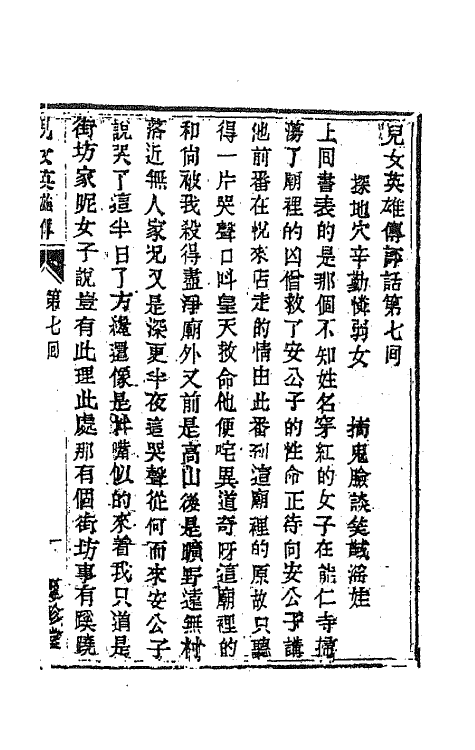 兒女英雄傳評話第七回
探地穴辛勤憐弱女　摘鬼臉談笑馘滛娃
上回書表的是那個不知姓名穿紅的女子在能仁寺掃
蕩了廟裡的凶僧救了安公子的性命正待向安公子講
他前番在悅來店走的情由此番到這廟裡的原故只聽
得一片哭聲口呌皇天救命他便咤異道奇呀這廟裡的
和尙被我殺得盡淨廟外又前是高山後是曠野遠無村
落近無人家况又是深更半夜這哭聲從何而來安公子
說哭了這半日了方纔還像是拌嘴似的來着我只道是
街坊家呢女子說豈有此理此處那有個街坊事有蹊蹺
兒女英雄傳
第七回
一
聚珍堂